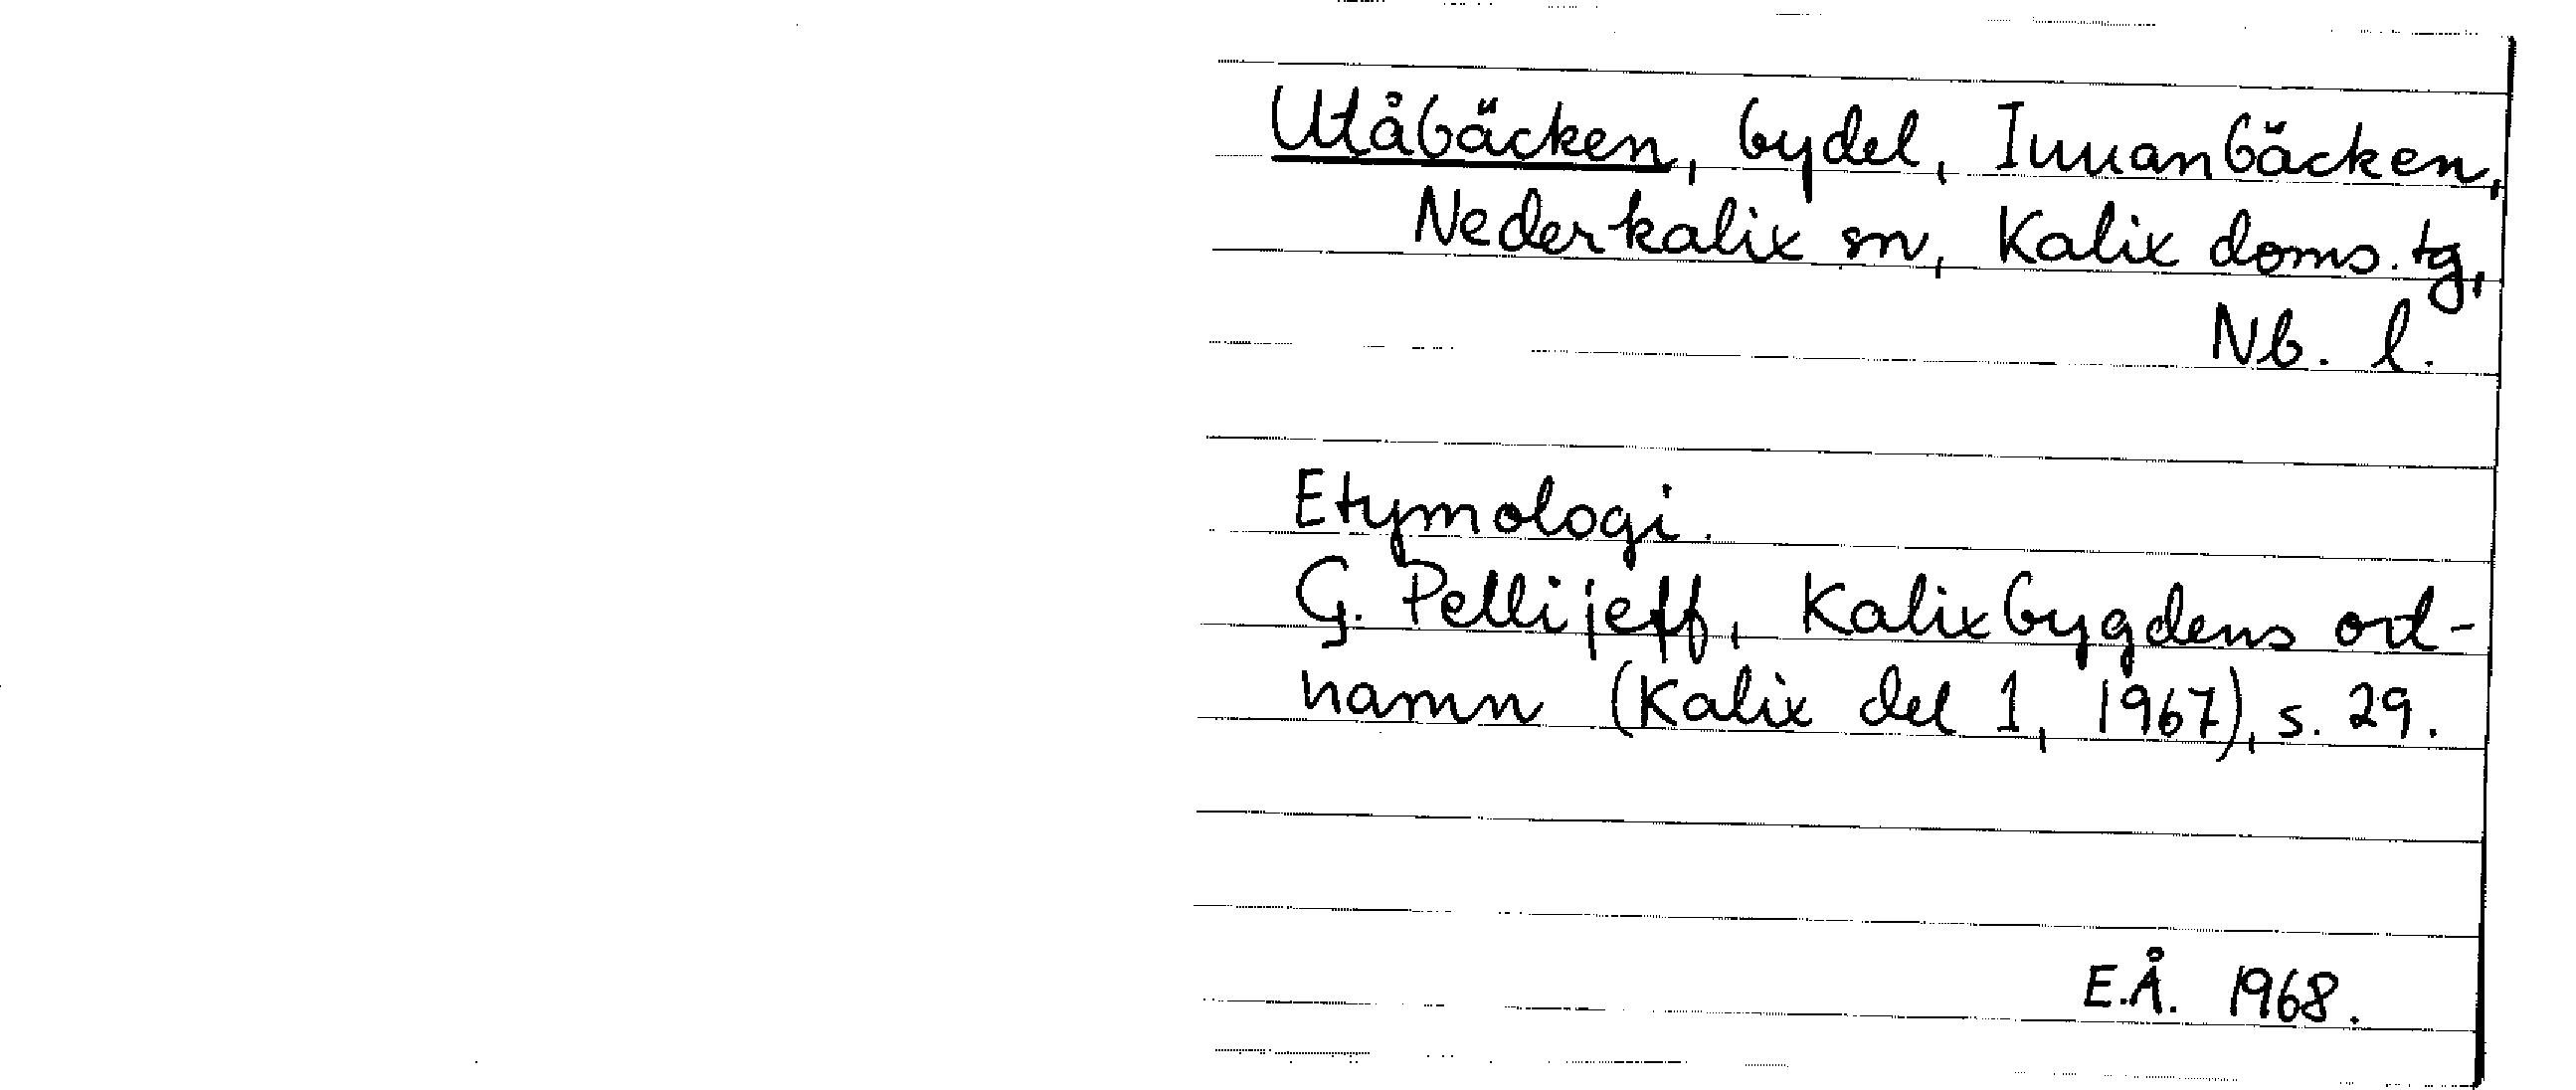 Utåbäcken, bydel, Innanbäcken,
Nederkalix sn, Kalix doms. tg,
Nb. l.
Etymologi.
G. Pellijeff, Kalixbygdens ort-
namn (Kalix del 1, 1967), s. 29.
E.Å. 1968.